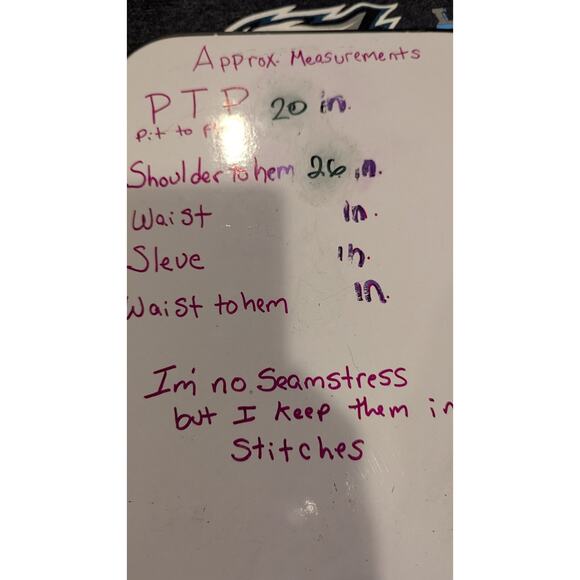 Approx. Measurements
PTP 20 in.
Pit to
Shoulder to hem 26 in.
Waist in.
Sleve in.
Waist to hem in.
I'm no Seamstress
but I keep them in
Stitches